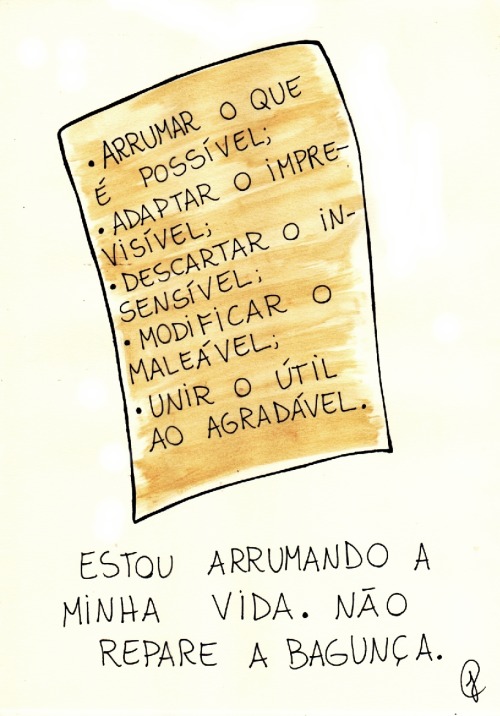 • ARRUMAR O QUE
É POSSÍVEL;
• ADAPTAR O IMPRE-
VISÍVEL;
• DESCARTAR O IN-
SENSÍVEL;
• MODIFICAR O
MALEÁVEL;
• UNIR O ÚTIL
AO AGRADÁVEL.
ESTOU ARRUMANDO A
MINHA VIDA. NÃO
REPARE A BAGUNÇA.